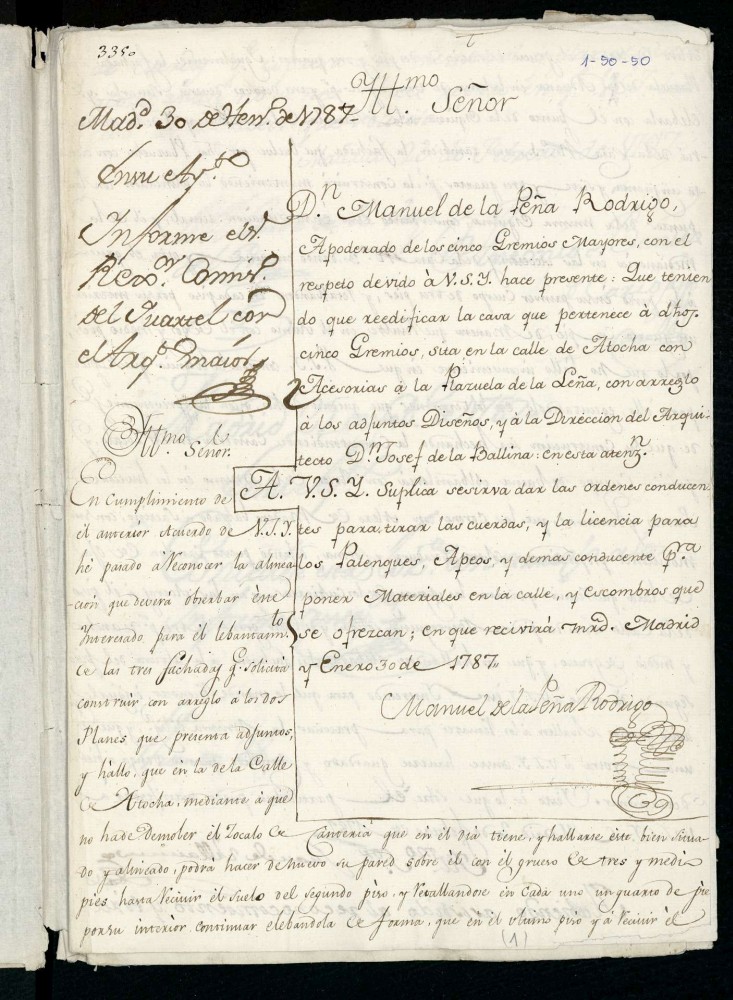 335.
1-50-50
Yll.mo Señor
Mad.d 30 de Hen.o de 1787
En su Ay.to
Informe el S.r
Rex.or Comis.o
del Quartel con
el Arq.o maior
D.n Manuel de la Peña Rodrigo,
Apoderado de los cinco Gremios Mayores, con el
respeto devido à V.S.Y. hace presente: Que tenien
do que reedificar la casa que pertenece à dhos.
cinco Gremios, sita en la calle de Atocha con
Acesorias à la Plazuela de la Leña, con arreglo
à los adjuntos Diseños, y à la Direccion del Arqui-
tecto D.n Josef de la Ballina: en esta atenz.n
A. V.S.Y. Suplica se sirva dar las ordenes conducen
tes para tirar las cuerdas, y la licencia para
los Palenques, Apeos, y demas conducente p.ra
poner Materiales en la calle, y escombros que
se ofrezcan; en que recivirà mrd. Madrid
y Enero 30 de 1787
Manuel de la Peña Rodrigo
Yll.mo Señor.
En cumplimiento de
el anterior Acuerdo de V.S.Y.
hé pasado à Reconocer la alinea
-cion que deverá obserbar el
Interesado para él lebantam.to
de las tres fachadas q. solicita
construir con arreglo á los dos
Planes que presenta adjuntos,
y hallo, que en la de la Calle
de Atocha, mediante á que
no ha de Demoler él Zocalo de Canteria que en él dia tiene, y hallarse éste bien situa-
do y alineado, podrá hacer de nuevo su pared sobre él con él grueso de tres y medio
pies hasta Recivir él suelo del segundo piso, y Revallandose en cada uno un quarto de pie
por su interior continuar elebandola de forma, que en él ultimo piso y á Recivir él
(1)